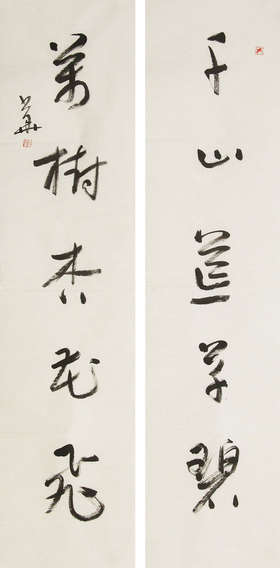 千山草碧
萬樹杏花飛
華